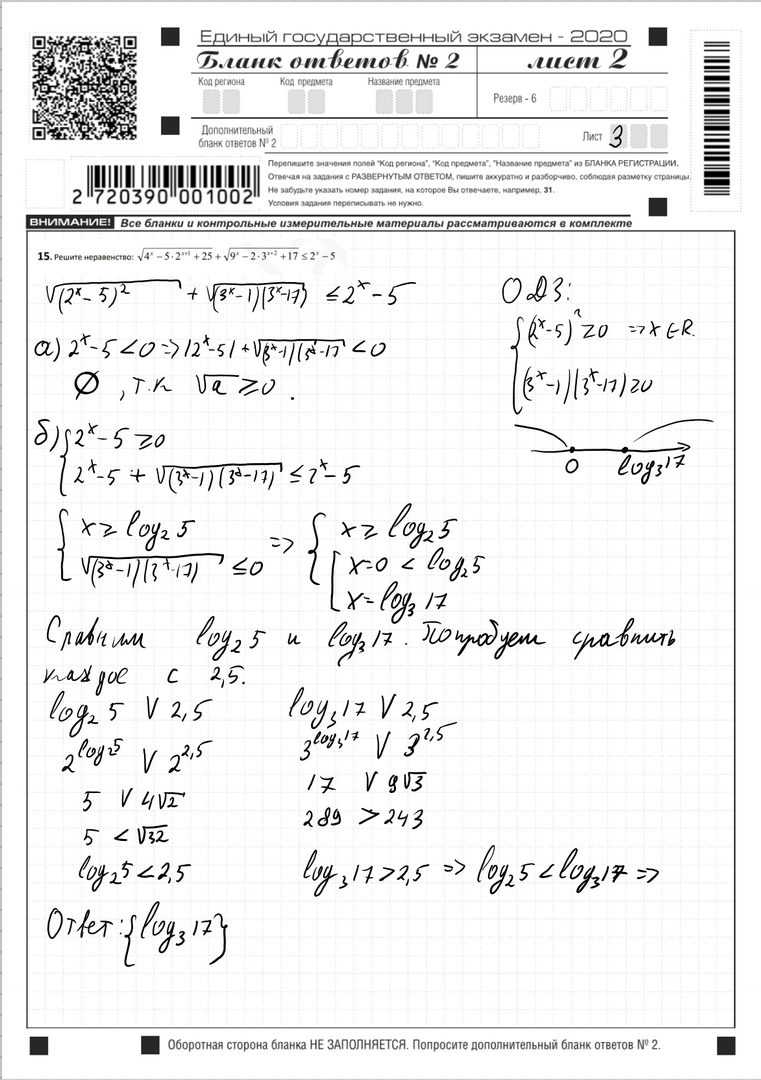 Единый государственный экзамен - 2020
Бланк ответов № 2 лист 2
Код региона Код предмета Название предмета
Резерв - 6
Дополнительный бланк ответов № 2
Лист 3
2 720390 001002
Перепишите значения полей "Код региона", "Код предмета", "Название предмета" из БЛАНКА РЕГИСТРАЦИИ.
Отвечая на задания с РАЗВЕРНУТЫМ ОТВЕТОМ, пишите аккуратно и разборчиво, соблюдая разметку страницы.
Не забудьте указать номер задания, на которое Вы отвечаете, например, 31.
Условия задания переписывать не нужно.
ВНИМАНИЕ! Все бланки и контрольные измерительные материалы рассматриваются в комплекте
15. Решите неравенство: √(4^x − 5·2^(x+1) + 25) + √(9^x − 2·3^(x+2) + 17) ≤ 2^x − 5
√((2^x − 5)^2) + √((3^x−1)(3^x−17)) ≤ 2^x − 5
ОДЗ:
{(2^x−5)^2 ≥ 0 => x ∈ R.
(3^x−1)(3^x−17) ≥ 0
0 log₃17
а) 2^x − 5 < 0 => |2^x−5| + √((3^x−1)(3^x−17)) < 0
∅, т.к √a ≥ 0.
б) {2^x − 5 ≥ 0
2^x − 5 + √((3^x−1)(3^x−17)) ≤ 2^x − 5
{x ≥ log₂ 5 => {x ≥ log₂ 5
√((3^x−1)(3^x−17)) ≤ 0 [x=0 < log₂5
x = log₃ 17
Сравним log₂ 5 и log₃ 17. Попробуем сравнить
каждое с 2,5.
log₂ 5 V 2,5 log₃ 17 V 2,5
2^(log₂5) V 2^(2,5) 3^(log₃17) V 3^(2,5)
5 V 4√2 17 V 9√3
5 < √32 289 > 243
log₂5 < 2,5 log₃ 17 > 2,5 => log₂5 < log₃17 =>
Ответ: {log₃ 17}
Оборотная сторона бланка НЕ ЗАПОЛНЯЕТСЯ. Попросите дополнительный бланк ответов № 2.